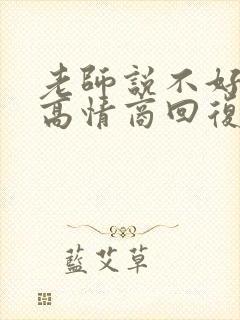 老師說不好
高情商回復
藍艾草